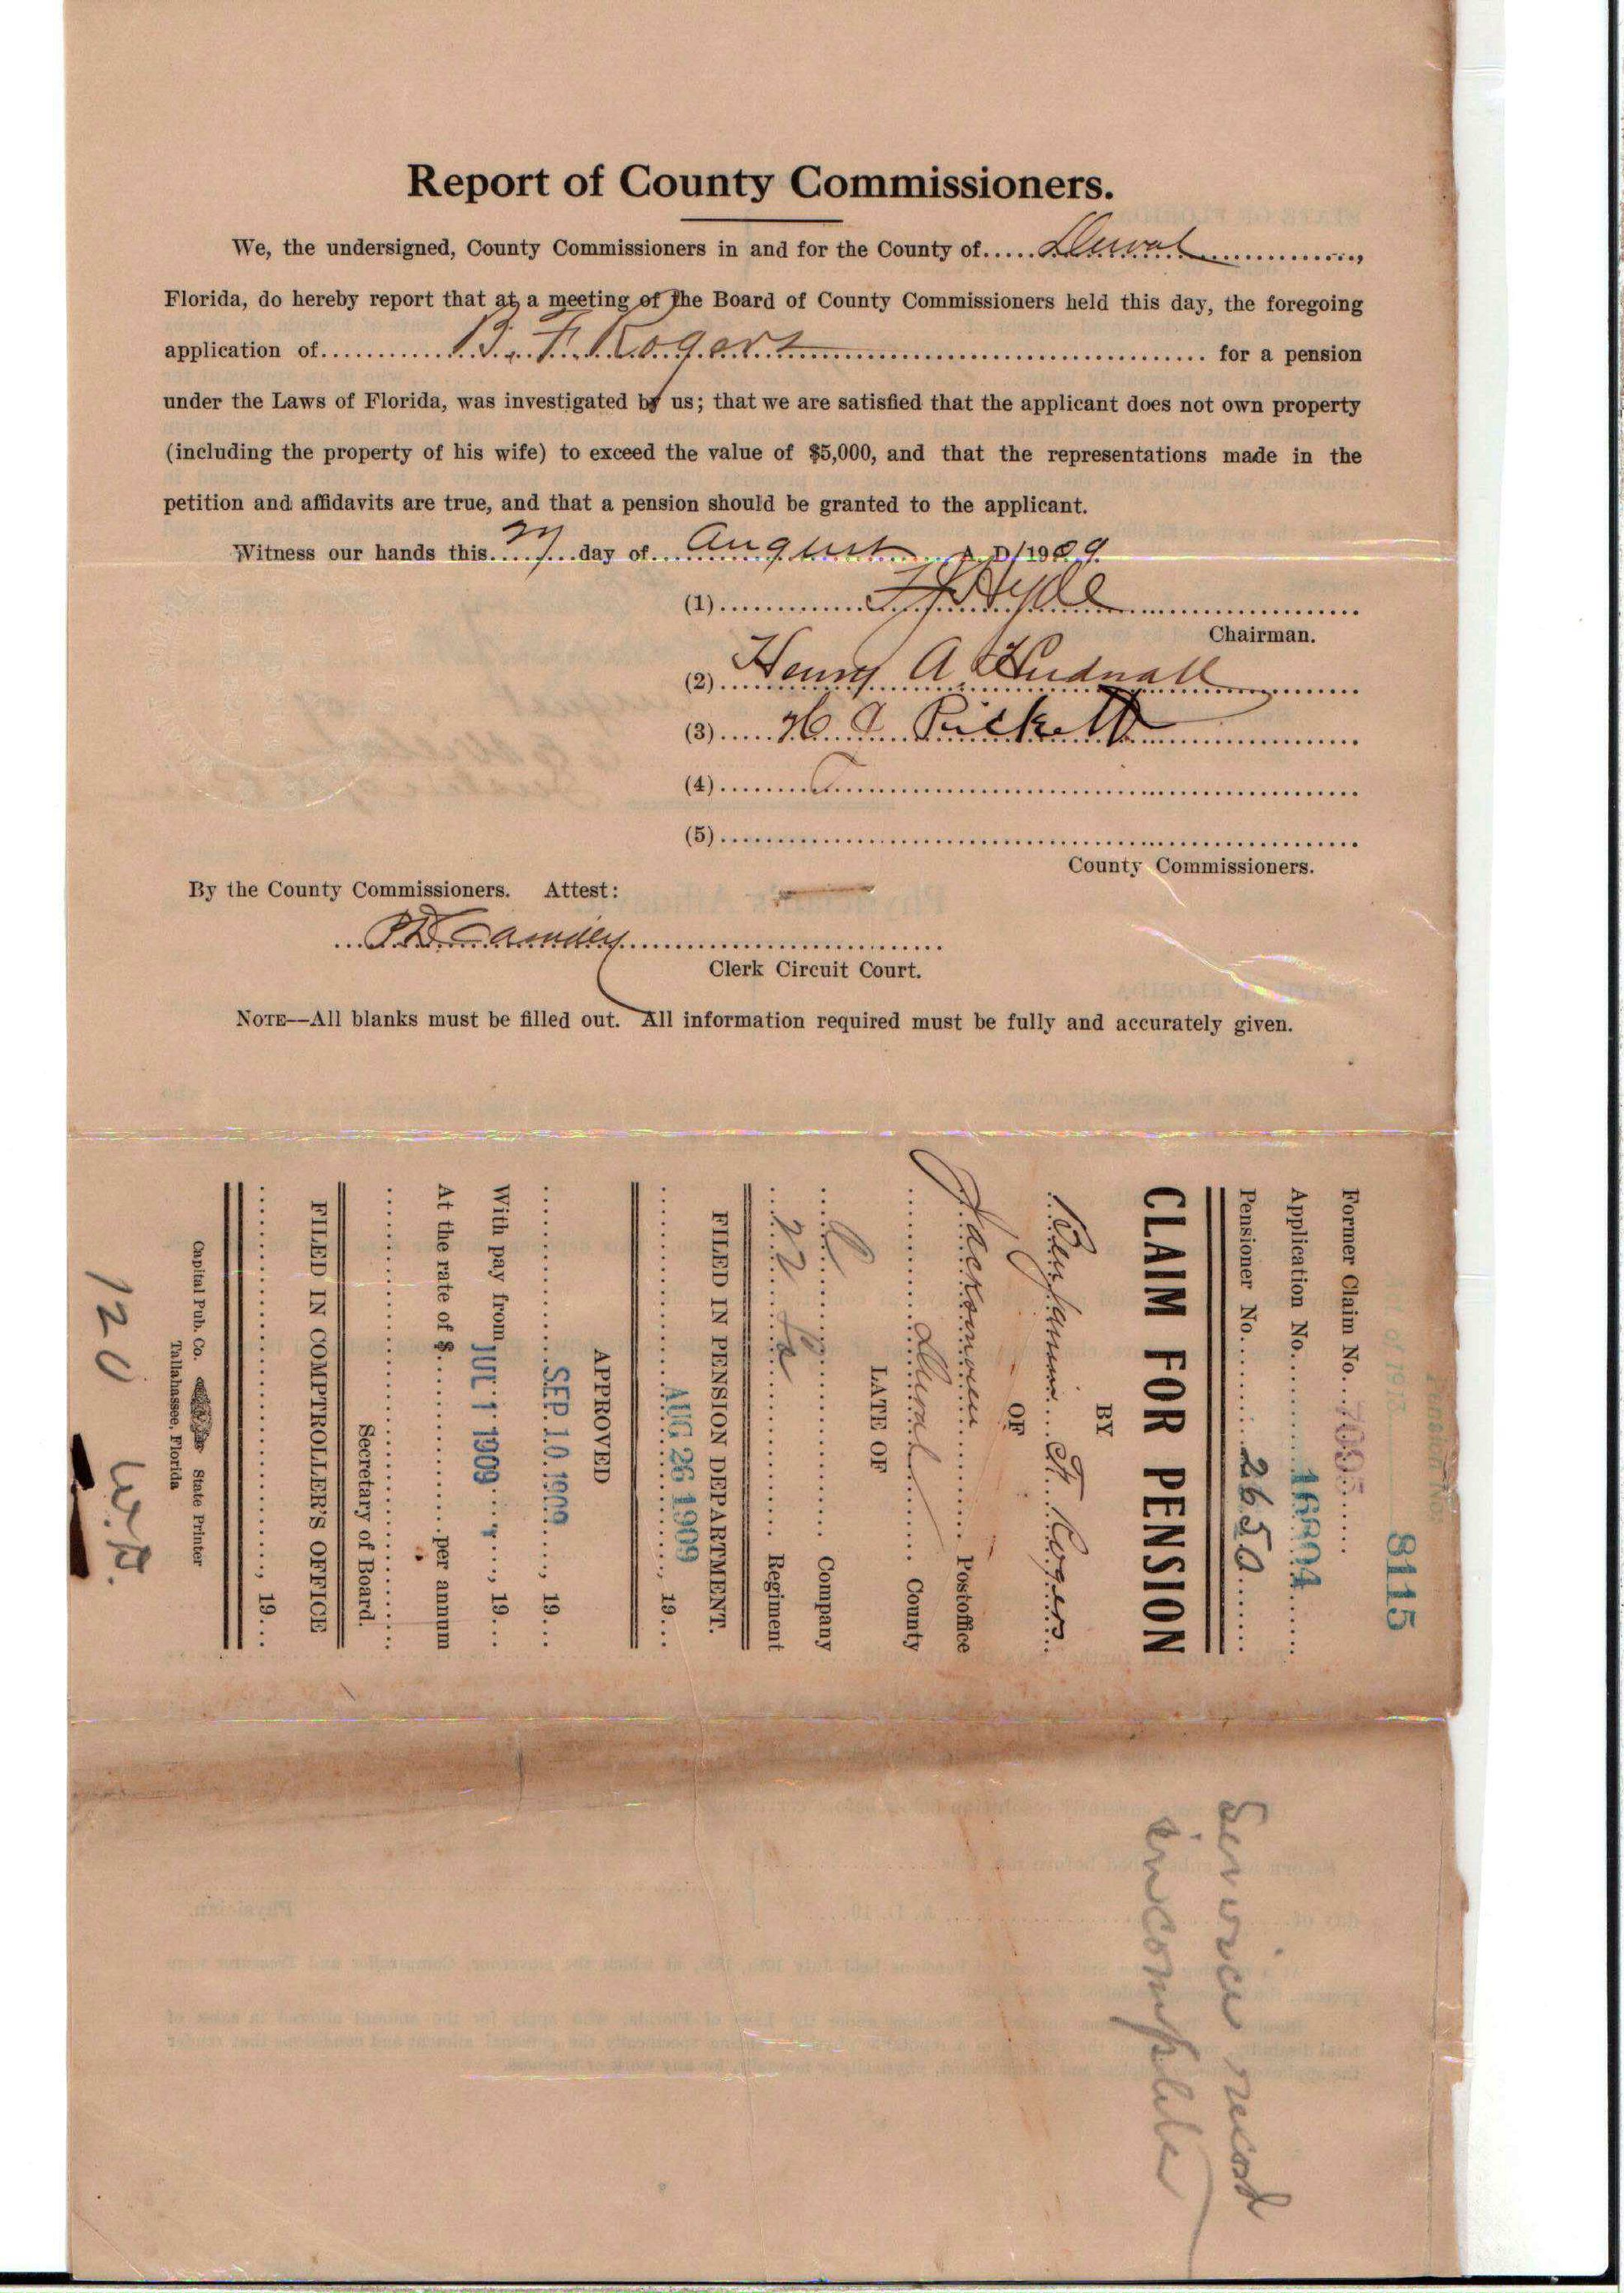 Report of County Commissioners.
We, the undersigned, County Commissioners in and for the County of..... Duval ..............,
Florida, do hereby report that at a meeting of the Board of County Commissioners held this day, the foregoing
application of............ B. F. Rogers ............ for a pension
under the Laws of Florida, was investigated by us; that we are satisfied that the applicant does not own property
(including the property of his wife) to exceed the value of $5,000, and that the representations made in the
petition and affidavits are true, and that a pension should be granted to the applicant.
Witness our hands this.... day of... August ... A. D. 1909.
(1).............. Hyde ..............
Chairman.
(2)... Henry A. Hudnall ...........
(3)..... Pickett ..............
(4)..............
(5)..............
County Commissioners.
By the County Commissioners. Attest:
Clerk Circuit Court.
NOTE—All blanks must be filled out. All information required must be fully and accurately given.
8115
Former Claim No.
Application No............ 16804 ......
Pensioner No............ 2650 .......
CLAIM FOR PENSION
BY
Benjamin F. Rogers
OF
Jacksonville ............ Postoffice
............ Duval ......... County
LATE OF
.... C .................. Company
... 22 Fa ............... Regiment
FILED IN PENSION DEPARTMENT.
............ AUG 26 1909 ......, 19....
APPROVED
............ SEP 10 1909 ......, 19....
With pay from JUL 1 1909 ......, 19....
At the rate of $.................. per annum
..............................
Secretary of Board.
FILED IN COMPTROLLER'S OFFICE
.............................., 19....
Capital Pub. Co. State Printer
Tallahassee, Florida
120 W.P.
Service record
incomplete